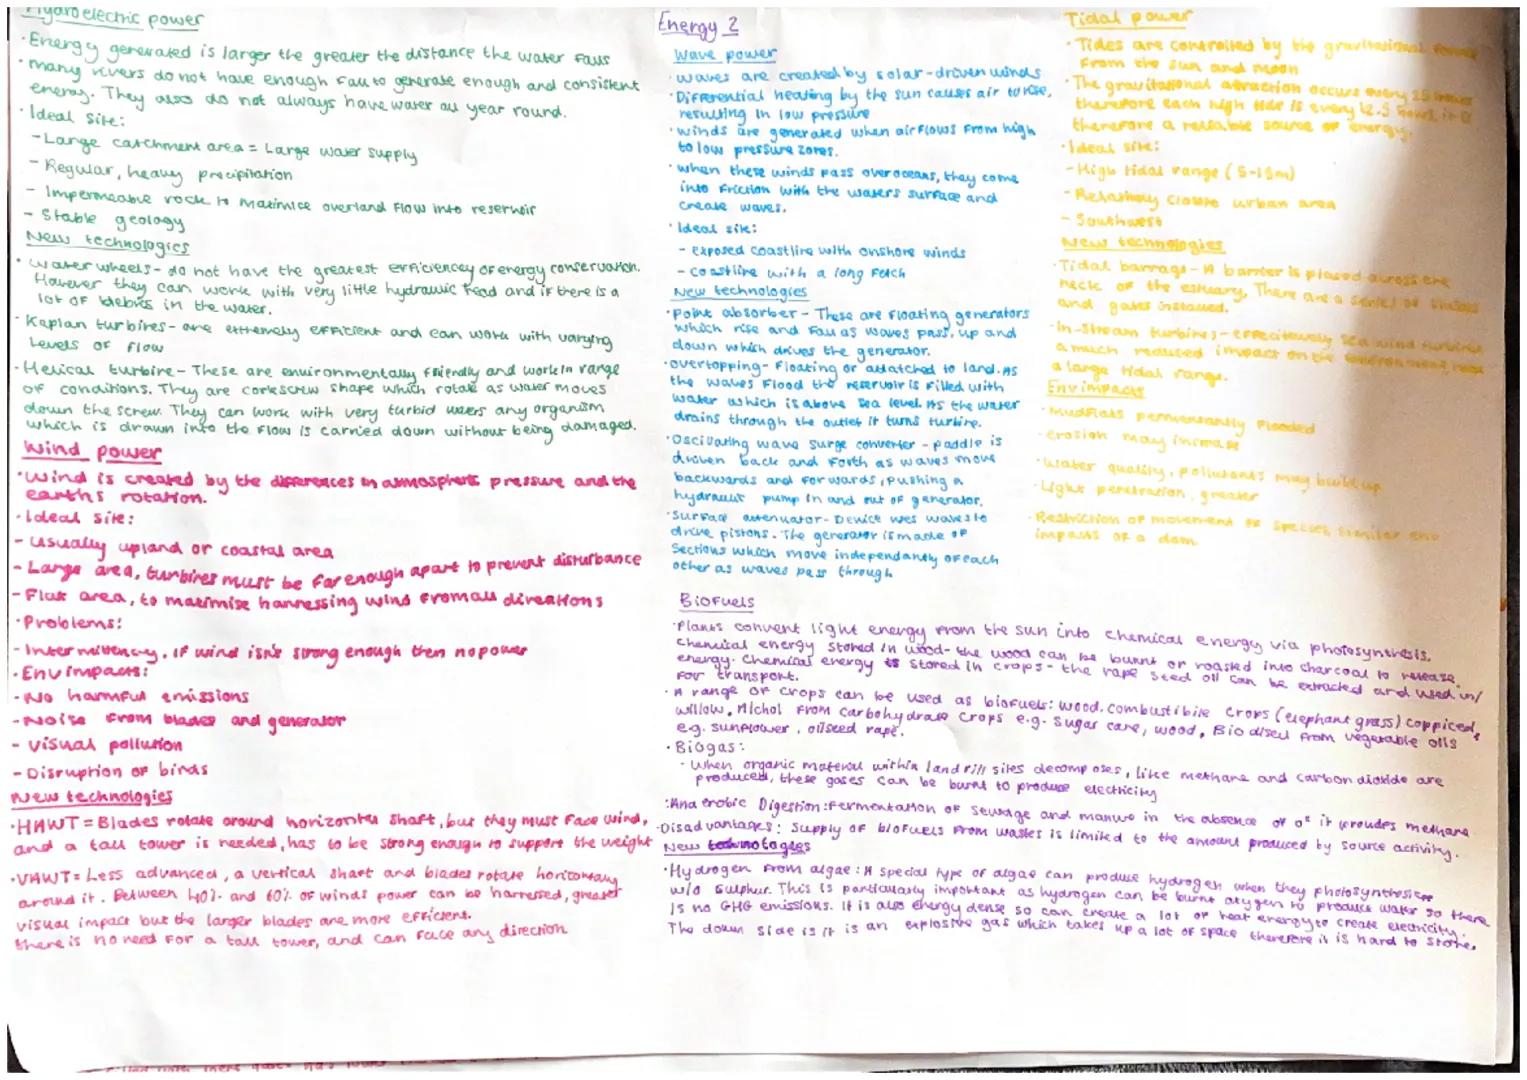 Hydroelectric power
· Energy generated is larger the greater the distance the water falls
· many rivers do not have enough fall to generate enough and consistent
energy. They also do not always have water all year round.
· Ideal Site:
- Large catchment area = Large water supply
- Regular, heavy precipitation
- Impermeable rock to maximice overland flow into reservoir
- Stable geology
New technologies
· water wheels - do not have the greatest efficiencey of energy conservation.
However they can work with very little hydraulic head and if there is a
lot of debies in the water.
· Kaplan turbines - are extremely efficient and can work with varying
levels of flow
· Helical turbine - These are environmentally friendly and work in range
of conditions. They are corkscrew shape which rotate as water moves
down the screw. They can work with very turbid waters any organism
which is drawn into the flow is carried down without being damaged.
Wind power
· Wind is created by the differences in atmospheric pressure and the
earths rotation.
· Ideal site:
- Usually upland or coastal area
- Large area, turbines must be far enough apart to prevent disturbance
- Flat area, to maximise harnessing wind from all directions
· Problems:
- Intermittency, if wind isn't strong enough then no power
· Env impacts:
- No harmful emissions
- Noise from blades and generator
- Visual pollution
- Disruption of birds
New technologies
· HAWT = Blades rotate around horizontal shaft, but they must face wind,
and a tall tower is needed, has to be strong enough to support the weight
· VAWT = Less advanced, a vertical shaft and blades rotate horizontally
around it. Between 40% and 60% of winds power can be harnessed, greater
visual impact but the larger blades are more efficient.
there is no need for a tall tower, and can face any direction
Energy 2
Wave power
· waves are created by solar-driven winds
· Differential heating by the sun causes air to rise,
resulting in low pressure
· winds are generated when air flows from high
to low pressure zones.
· when these winds pass over oceans, they come
into friction with the waters surface and
create waves.
· Ideal site:
- exposed coastline with onshore winds
- coastline with a long fetch
New technologies
· point absorber - These are floating generators
which rise and fall as waves pass, up and
down which drives the generator.
· overtopping - Floating or attatched to land. As
the waves flood the reservoir is filled with
water which is above sea level. As the water
drains through the outlet it turns turbine.
· Oscillating wave surge converter - paddle is
driven back and forth as waves move
backwards and forwards, pushing a
hydraulic pump in and out of generator.
· Surface attenuator - Device uses waves to
drive pistons. The generator is made of
Sections which move independantly of each
other as waves pass through
Tidal power
· Tides are controlled by the gravitational forces
from the sun and moon
· The gravitational attraction occurs every 25 hours
therefore each high tide is every 12.5 hours, it is
therefore a reliable source of energy.
· Ideal site:
- High tidal range (5-15m)
- Relativley close to urban area
- Southwest
New technologies
· Tidal barrage - A barrier is placed across the
neck of the estuary. There are a series of
and gates installed.
· In-stream turbines - effectively sea wind turbines
a much reduced impact on the environment need
a large tidal range.
Env impacts
· Mudflats permanently flooded
· erosion may increase
· water quality, pollutants may build up
· Light penetration, greater
· Restriction of movement of species, similar env
impacts of a dam
Biofuels
· Plants convent light energy from the sun into chemical energy via photosynthesis.
Chemical energy stored in wood - the wood can be burnt or roasted into charcoal to release
energy. Chemical energy is stored in crops - the rape seed oil can be extracted and used in/
for transport.
· A range of crops can be used as biofuels: wood. combustibile crops (elephant grass) coppiced,
willow, Alchol from carbohydrate crops e.g. sugar cane, wood, Bio disel from vegetable oils
e.g. sunflower, oilseed rape.
· Biogas:
· When organic material within landfill sites decomposes, like methane and carbon dioxide are
produced, these gases can be burnt to produce electricity
: Anaerobic Digestion: fermentation of sewage and manure in the absence of O² it proudes methane
· Disadvantages: Supply of biofuels from wastes is limited to the amount produced by source activity.
New technotogies
· Hydrogen from algae: A special type of algae can produce hydrogen when they photosynthesise
w/o sulphur. This is particularly important as hydrogen can be burnt oxygen to produce water so there
is no GHG emissions. It is also energy dense so can create a lot of heat energy to create electricity.
The down side is it is an explosive gas which takes up a lot of space therefore it is hard to store.